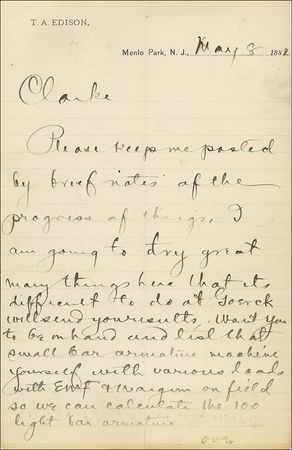 T. A. EDISON,
Menlo Park, N. J., May 8 1882
Clarke
Please keep me posted
by brief notes of the
progress of things. I
am going to try great
many things here that its
difficult to do at Goerck
will send you results. Want you
to be on hand and test that
small bar armature machine
yourself with various loads
with EMF & on field
so we can calculate the 100
light bar armature
over